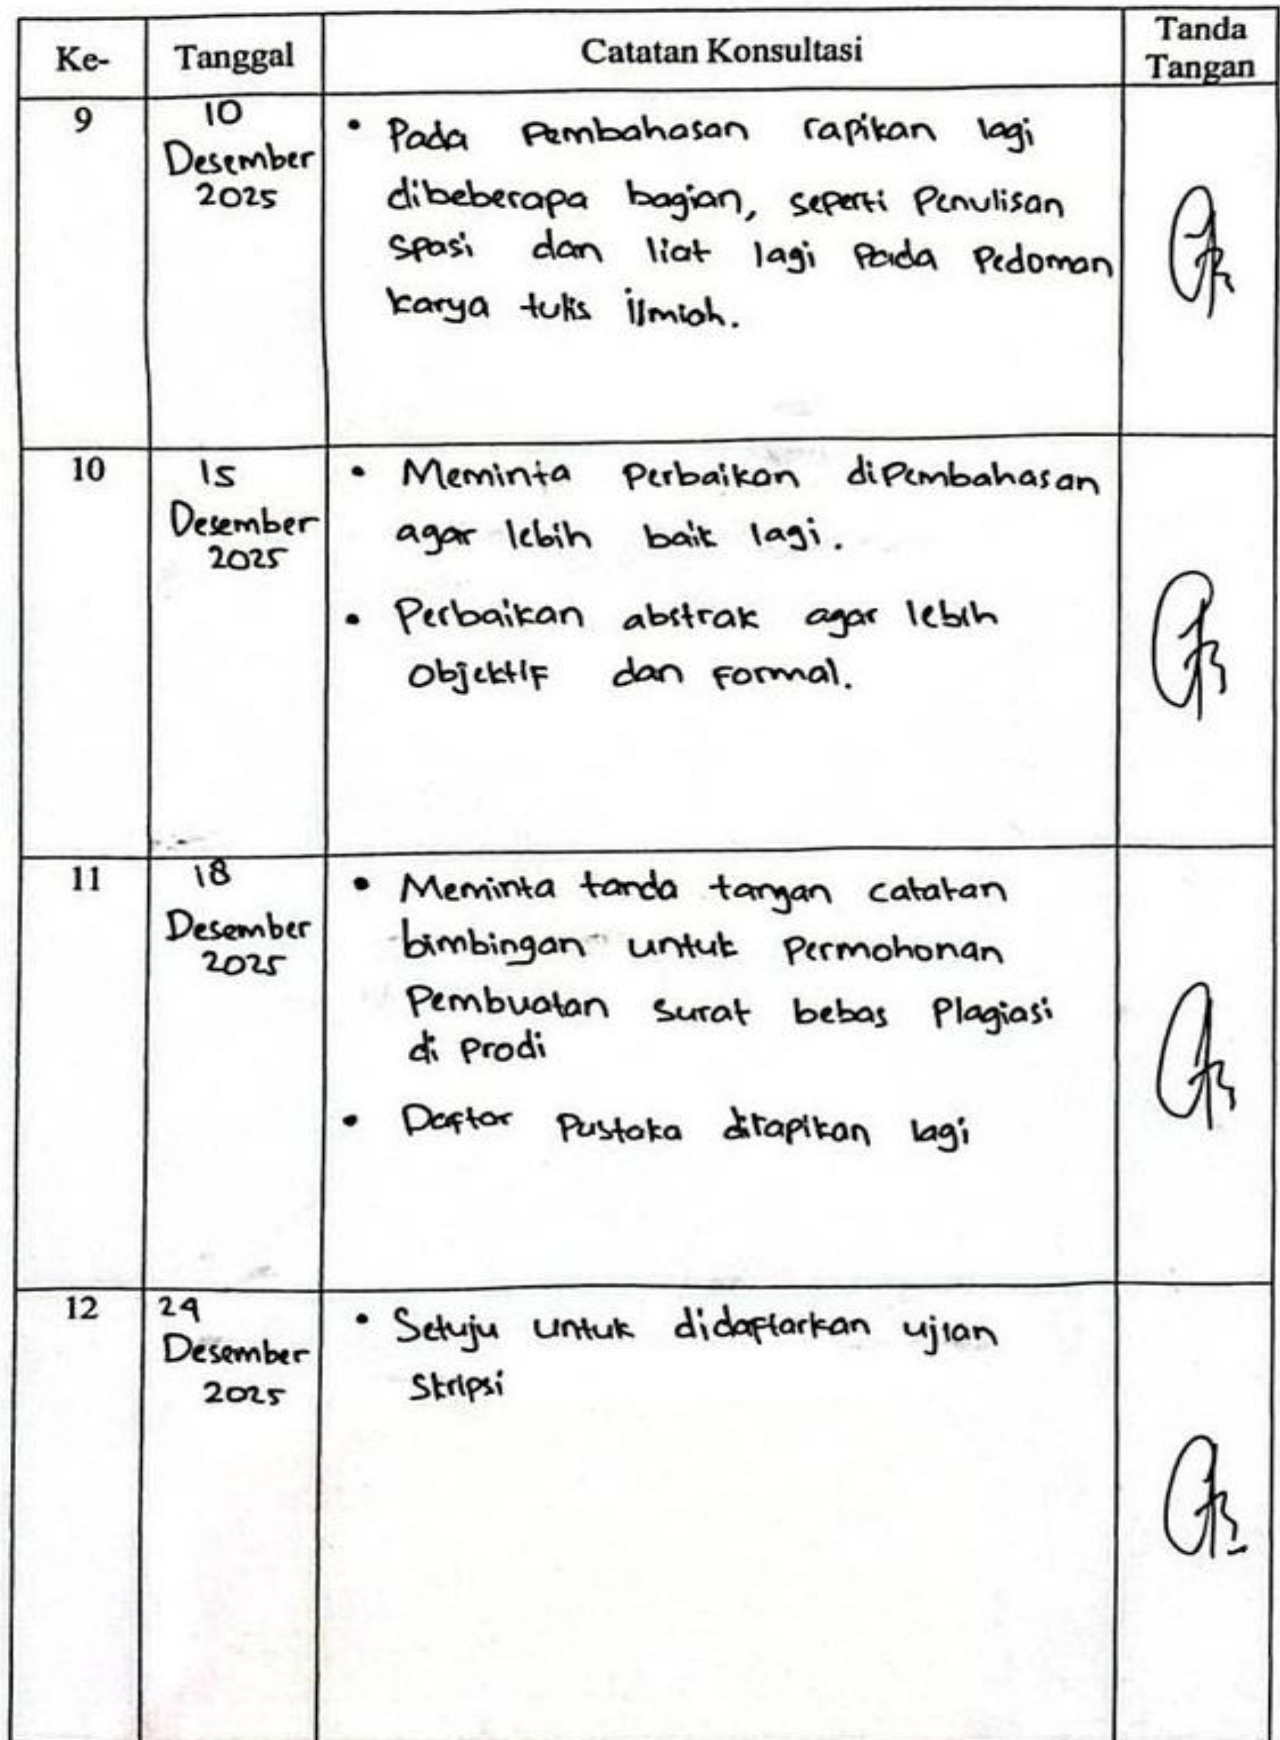 Ke-
Tanggal
Catatan Konsultasi
Tanda
Tangan
9
10
Desember
2025
• Pada Pembahasan rapikan lagi
dibeberapa bagian, seperti Penulisan
spasi dan liat lagi Pada Pedoman
karya tulis ilmiah.
10
15
Desember
2025
• Meminta Perbaikan diPembahasan
agar lebih baik lagi.
• Perbaikan abstrak agar lebih
objektif dan formal.
11
18
Desember
2025
• Meminta tanda tangan catatan
bimbingan untuk Permohonan
Pembuatan surat bebas Plagiasi
di Prodi
• Daftar Pustaka dirapikan lagi
12
24
Desember
2025
• Setuju untuk didaftarkan ujian
Skripsi